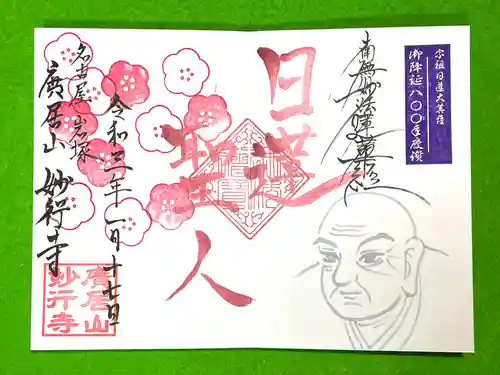 宗祖日蓮大菩薩
御降誕八〇〇年慶讃
南無妙法蓮華経
日蓮
聖
人
令和三年一月十七日
名古屋岩塚
廣居山 妙行寺
廣居山
妙行寺